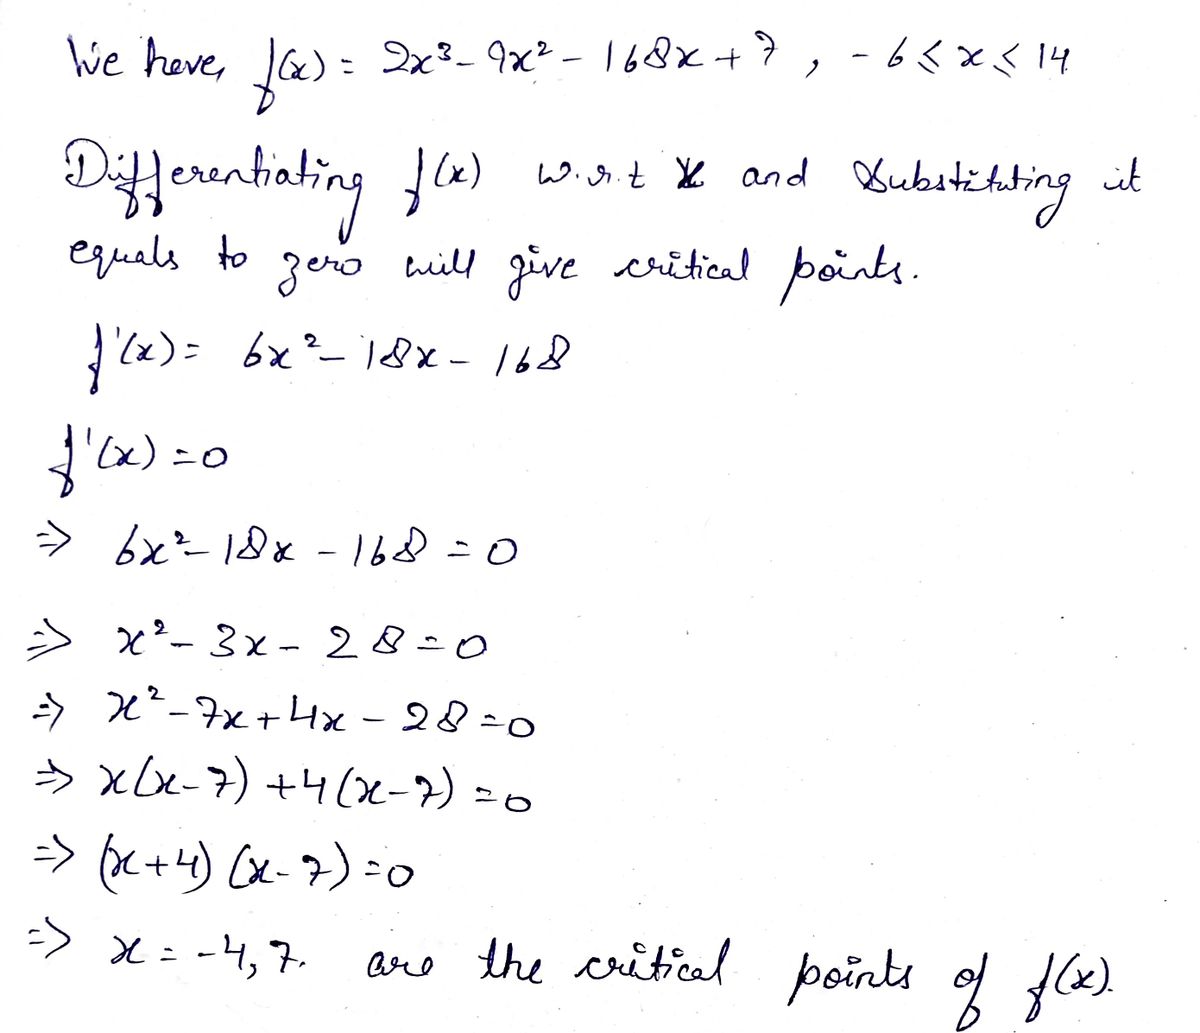 We have, f(x) = 2x³ - 9x² - 168x + 7 , -6 ≤ x ≤ 14
Differentiating f(x) w.r.t x and Substituting it
equals to zero will give critical points.
f'(x) = 6x² - 18x - 168
f'(x) = 0
⇒ 6x² - 18x - 168 = 0
⇒ x² - 3x - 28 = 0
⇒ x² - 7x + 4x - 28 = 0
⇒ x(x-7) + 4(x-7) = 0
⇒ (x+4) (x-7) = 0
⇒ x = -4, 7. are the critical points of f(x).